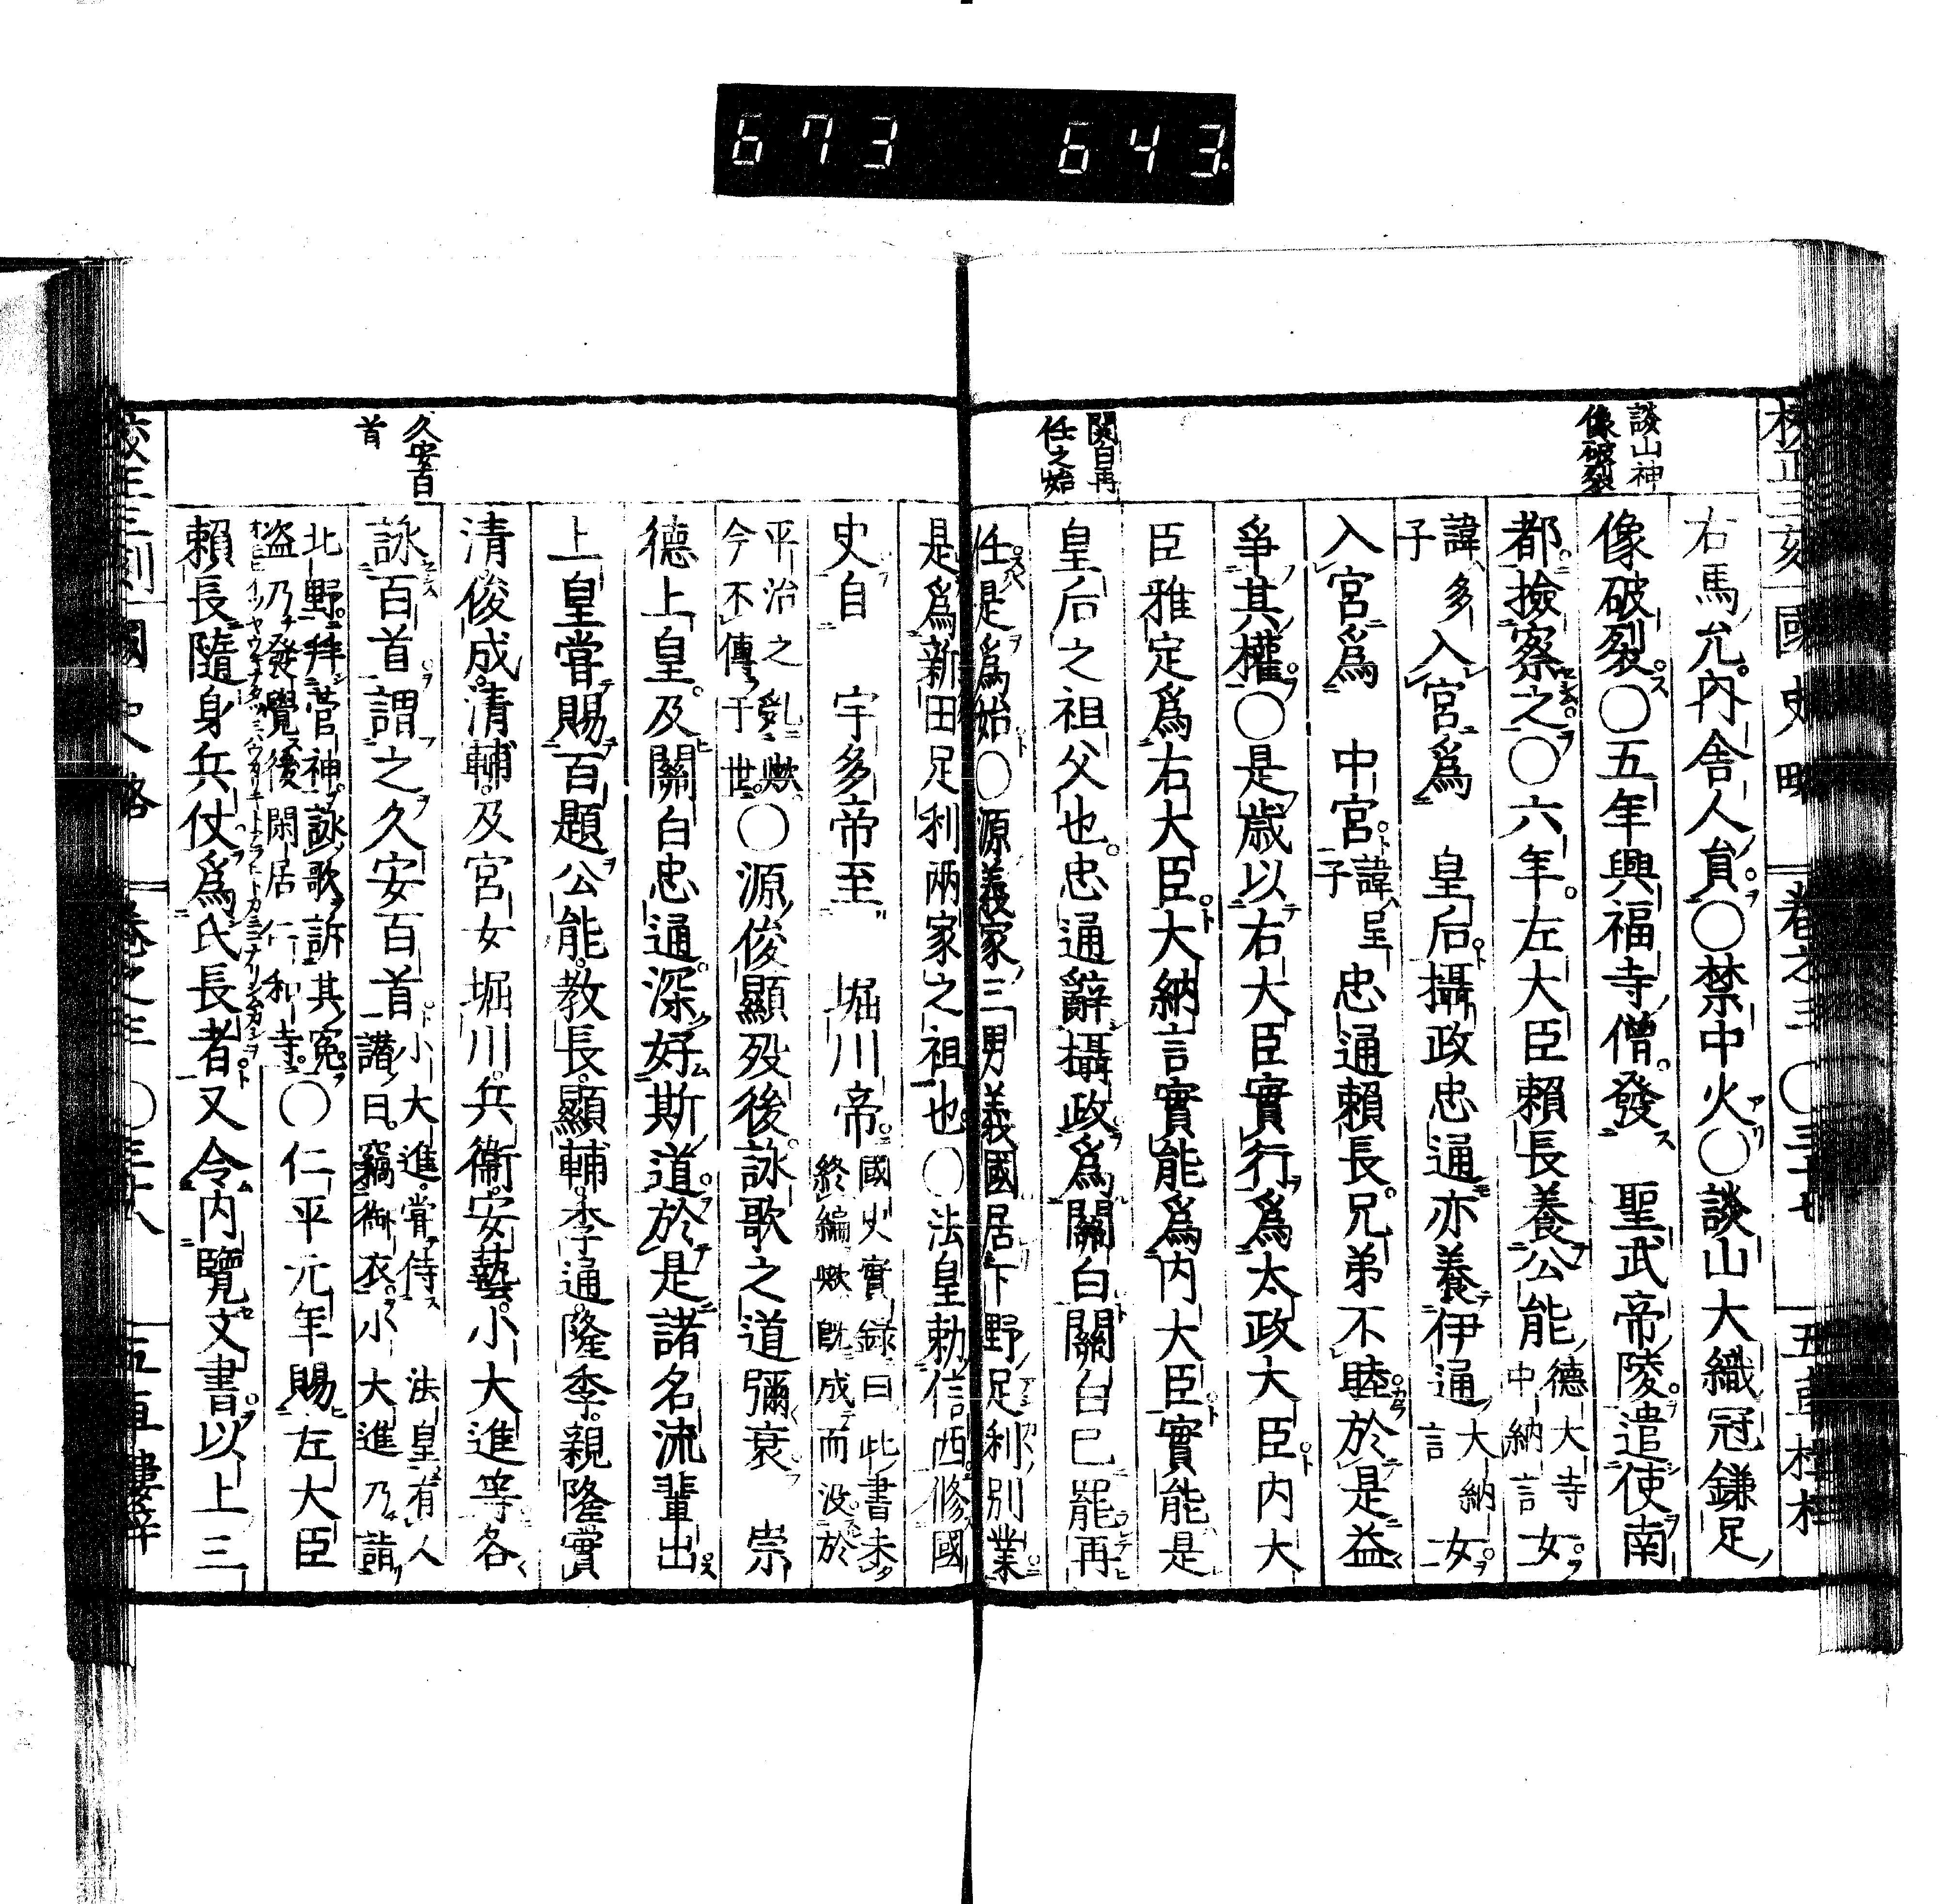 673 643.
校正三刻 國史略 卷之三 〇三十七 五車樓梓
談山神
像破裂
關白再
任之始
右馬允内舍人貟〇禁中火〇談山大織冠鎌足
像破裂〇五年興福寺僧發 聖武帝陵遣使南
都撿察之〇六年左大臣賴長養公能德大寺中納言女
諱多子入宮爲 皇后攝政忠通亦養伊通大納言女
入宮爲 中宮諱呈子忠通賴長兄弟不睦於是益
爭其權〇是歲以右大臣實行爲太政大臣内大
臣雅定爲右大臣大納言實能爲内大臣實能是
皇后之祖父也忠通辭攝政爲關白關白已罷再
任是爲始〇源義家三男義國居下野足利別業
是爲新田足利兩家之祖也〇法皇勅信西修國
史自 宇多帝至 堀川帝國史實錄曰此書未終編歟既成而沒於
平治之亂歟今不傳于世〇源俊顯歿後詠歌之道彌衰 崇
德上皇及關白忠通深好斯道於是諸名流輩出
上皇嘗賜百題公能教長顯輔季通隆季親隆實
清俊成清輔及宮女堀川兵衞安藝小大進等各
詠百首謂之久安百首小大進嘗侍 法皇有人讃曰竊御衣小大進乃詣
北野拜菅神詠歌訴其冤盜乃發覺後閑居仁和寺〇仁平元年賜左大臣
賴長隨身兵仗爲氏長者又令内覽文書以上三
久安百
首
校正三刻 國史略 卷之三 〇三十八 五車樓梓